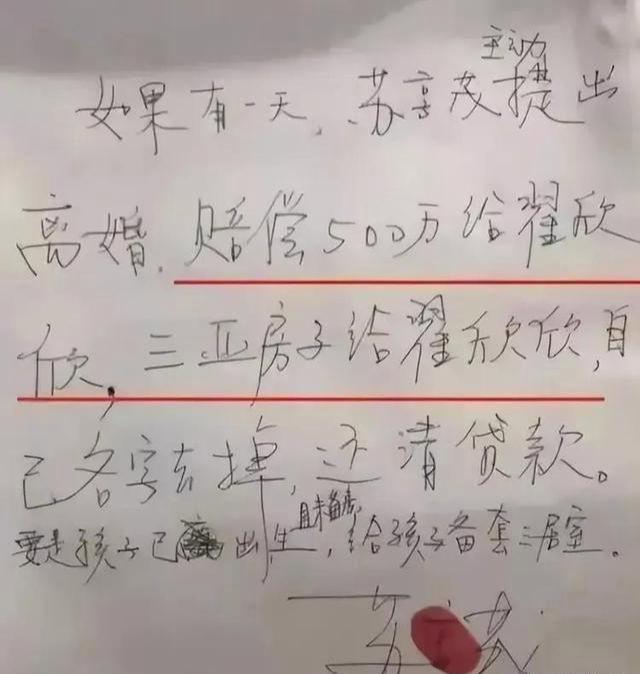 主动
如果有一天,苏享茂提出
离婚,赔偿500万给翟欣
欣,三亚房子给翟欣欣,自
己名字去掉,还清贷款。
要是孩子已出生,给孩子备套三居室。
苏 茂